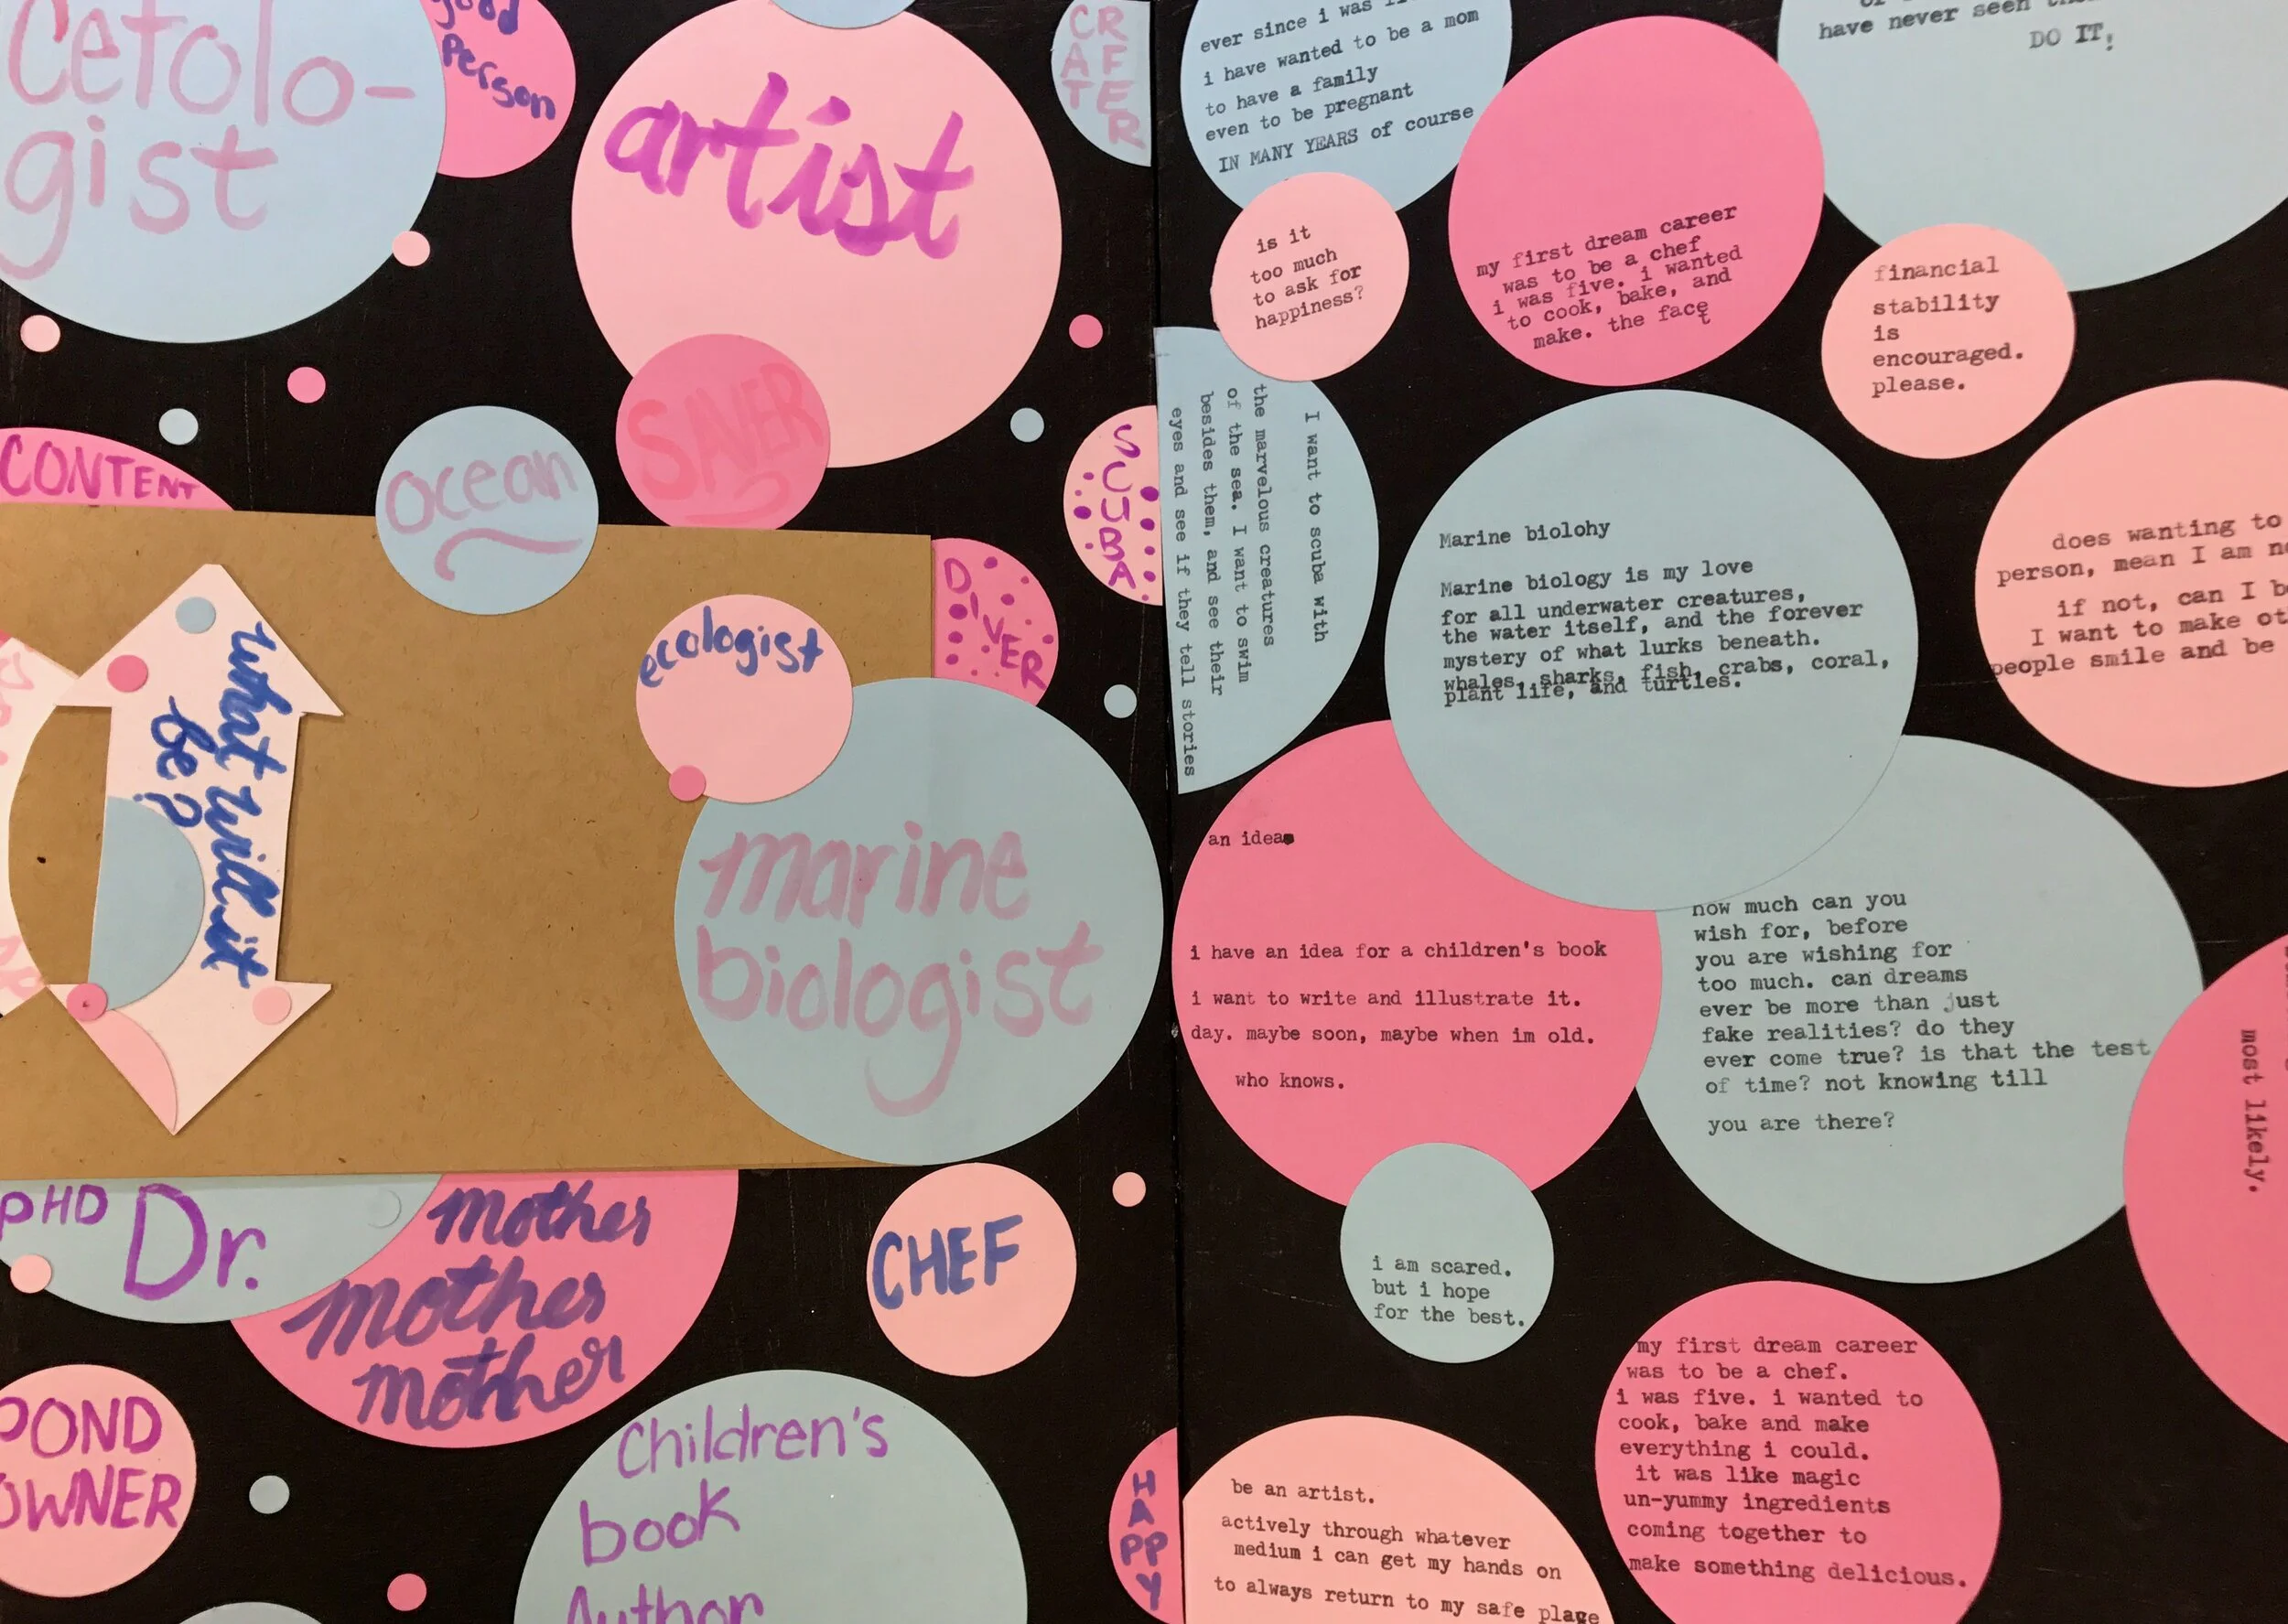 Cetolo-
gist
good
Person
artist
CRAFTER
SAVER
ocean
CONTENT
SCUBA
DIVER
ecologist
what will it
be?
marine
biologist
PHD Dr.
mother
mother
mother
CHEF
POND
OWNER
Children's
book
Author
HAPPY
ever since i was
i have wanted to be a mom
to have a family
even to be pregnant
IN MANY YEARS of course
is it
too much
to ask for
happiness?
my first dream career
was to be a chef
i was five. i wanted
to cook, bake, and
make. the fact
have never seen
DO IT!
financial
stability
is
encouraged.
please.
I want to scuba with
the marvelous creatures
of the sea. I want to swim
besides them, and see their
eyes and see if they tell stories
Marine biolohy
Marine biology is my love
for all underwater creatures,
the water itself, and the forever
mystery of what lurks beneath.
whales, sharks, fish, crabs, coral,
plant life, and turtles.
does wanting to
person, mean I am
if not, can I
I want to make
people smile and be
an idea
i have an idea for a children's book
i want to write and illustrate it.
day. maybe soon, maybe when im old.
who knows.
how much can you
wish for, before
you are wishing for
too much. can dreams
ever be more than just
fake realities? do they
ever come true? is that the test
of time? not knowing till
you are there?
most likely.
i am scared.
but i hope
for the best.
my first dream career
was to be a chef.
i was five. i wanted to
cook, bake and make
everything i could.
it was like magic
un-yummy ingredients
coming together to
make something delicious.
be an artist.
actively through whatever
medium i can get my hands on
to always return to my safe place